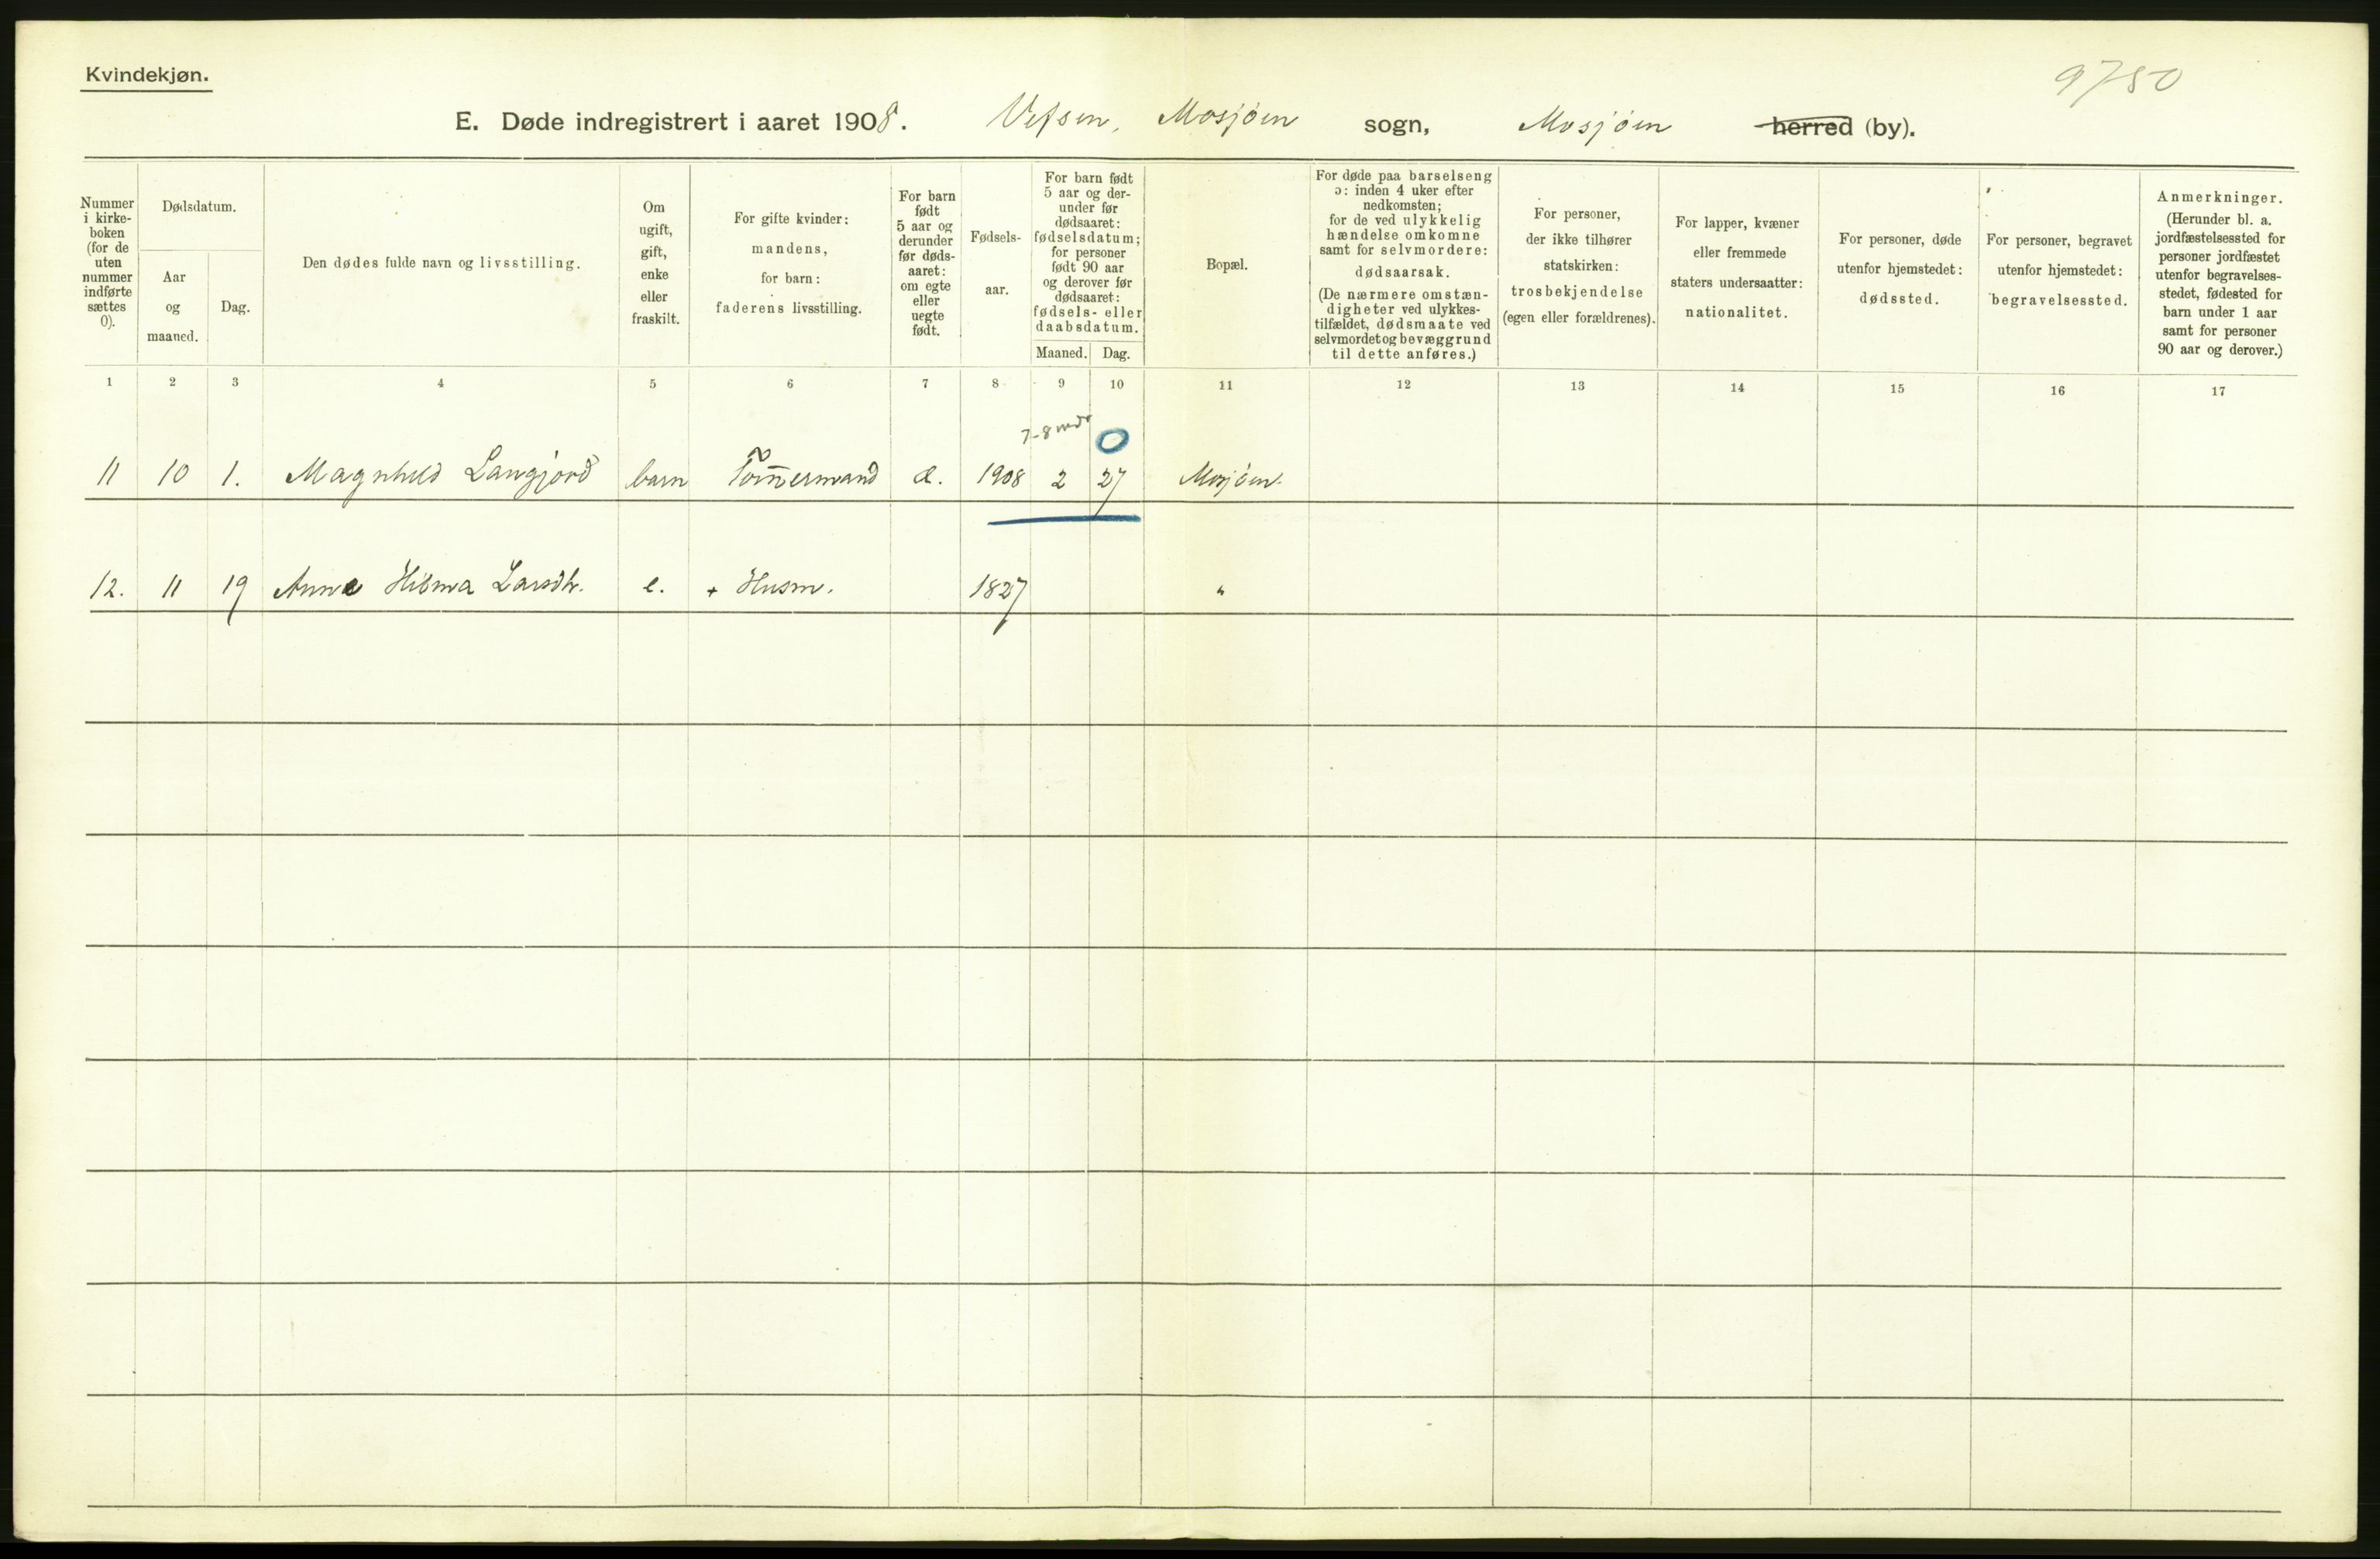 Kvindekjøn.
9750
E. Døde indregistrert i aaret 1908. Vefsen, Mosjöen sogn, Mosjöen herred (by).
Nummer
i kirke-
boken
(for de
uten
nummer
indførte
sættes
0).
Dødsdatum.
Aar
og
maaned.
Dag.
Den dødes fulde navn og livsstilling.
Om
ugift,
gift,
enke
eller
fraskilt.
For gifte kvinder:
mandens,
for barn:
faderens livsstilling.
For barn
født
5 aar og
derunder
før døds-
aaret:
om egte
eller
uegte
født.
Fødsels-
aar.
For barn født
5 aar og der-
under før
dødsaaret:
fødselsdatum;
for personer
født 90 aar
og derover før
dødsaaret:
fødsels- eller
daabsdatum.
Maaned. Dag.
Bopæl.
For døde paa barselseng
ɔ: inden 4 uker efter
nedkomsten;
for de ved ulykkelig
hændelse omkomne
samt for selvmordere:
dødsaarsak.
(De nærmere omstæn-
digheter ved ulykkes-
tilfældet, dødsmaate ved
selvmordet og bevæggrund
til dette anføres.)
For personer,
der ikke tilhører
statskirken:
trosbekjendelse
(egen eller forældrenes).
For lapper, kvæner
eller fremmede
staters undersaatter:
nationalitet.
For personer, døde
utenfor hjemstedet:
dødssted.
For personer, begravet
utenfor hjemstedet:
begravelsessted.
Anmerkninger.
(Herunder bl. a.
jordfæstelsessted for
personer jordfæstet
utenfor begravelses-
stedet, fødested for
barn under 1 aar
samt for personer
90 aar og derover.)
1 2 3 4 5 6 7 8 9 10 11 12 13 14 15 16 17
7-8 mdr 0
11 10 1. Magnhild Langjord barn Tömmermand æ. 1908 2 27 Mosjöen.
12. 11 19 Anna Hilma Larsdtr. e. + Husm. 1827 "